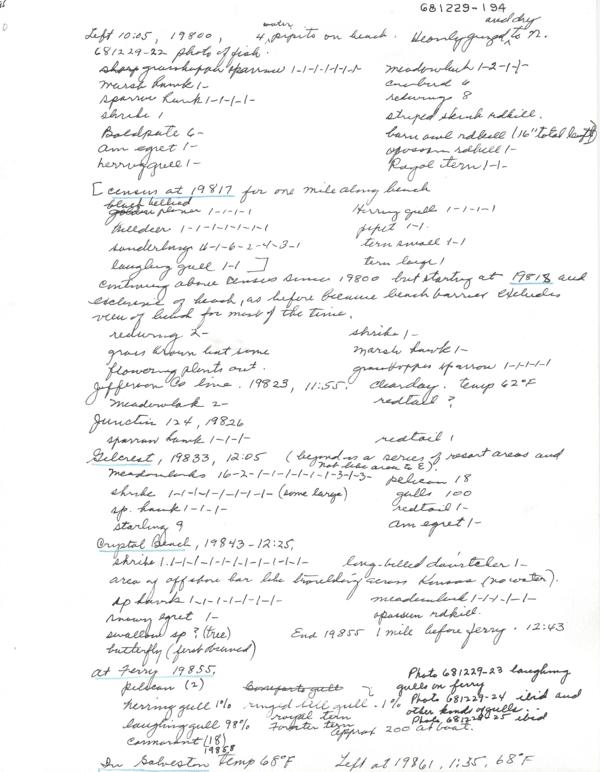 681229-194
Left 10:05, 19800, 4 water pipits on beach. Heavily grazed and dry to N.
681229-22 photo of fish.
sharp grasshopper sparrow 1-1-1-1-1-1-1 meadowlark 1-2-1-1-
marsh hawk 1- cowbird 6
sparrow hawk 1-1-1-1- redwing 8
shrike 1 striped skunk rdkill.
Baldpate 6- barn owl rdkill (16" total length)
am egret 1- opossum rdkill 1-
herring gull 1- Royal tern 1-1-
[census at 19817 for one mile along beach
black bellied
golden plover 1-1-1-1 Herring gull 1-1-1-1
killdeer 1-1-1-1-1-1-1 pipit 1-1.
sanderling 4-1-6-2-4-3-1 tern small 1-1
laughing gull 1-1 ] tern large 1
continuing above census since 19800 but starting at 19818 and
exclusive of beach, as before because beach barrier excludes
view of beach for most of the time.
redwing 2- shrike 1-
grass brown but some marsh hawk 1-
flowering plants out. grasshopper sparrow 1-1-1-1-1
Jefferson Co line. 19823, 11:55. clear day. temp 62°F
meadowlark 2- redtail ?
Junction 124, 19826
sparrow hawk 1-1-1- redtail 1
Gilcrest, 19833, 12:05 (beyond is a series of resort areas and
not like area to E).
meadowlarks 16-2-1-1-1-1-1-1-3-1-3- pelican 18
shrike 1-1-1-1-1-1-1-1- (some large) gulls 100
sp. hawk 1-1-1- redtail 1-
starling 9 am egret 1-
Crystal Beach, 19843-12:25,
shrike 1.1-1-1-1-1-1-1-1-1-1- long-billed dowitcher 1-
area of offshore bar like travelling across Kansas (no water).
sp hawks 1-1-1-1-1-1-1- meadowlark 1-1-1-1-1-
snowy egret 1- opossum rdkill.
swallow sp? (tree) End 19855 1 mile before ferry. 12:43
butterfly (first browned)
at Ferry 19855,
pelican (2) Bonaparts gull
herring gull 1% ringed bill gull - 1%
laughing gull 98% royal tern
Forster tern
cormorant (18) approx 200 at boat.
19858
Photo 681229-23 laughing
gulls on ferry
Photo 681229-24 ibid and
other kinds of gulls.
Photo, 681229-25 ibid
In Galveston temp 68°F Left at 19861, 1:35, 68°F